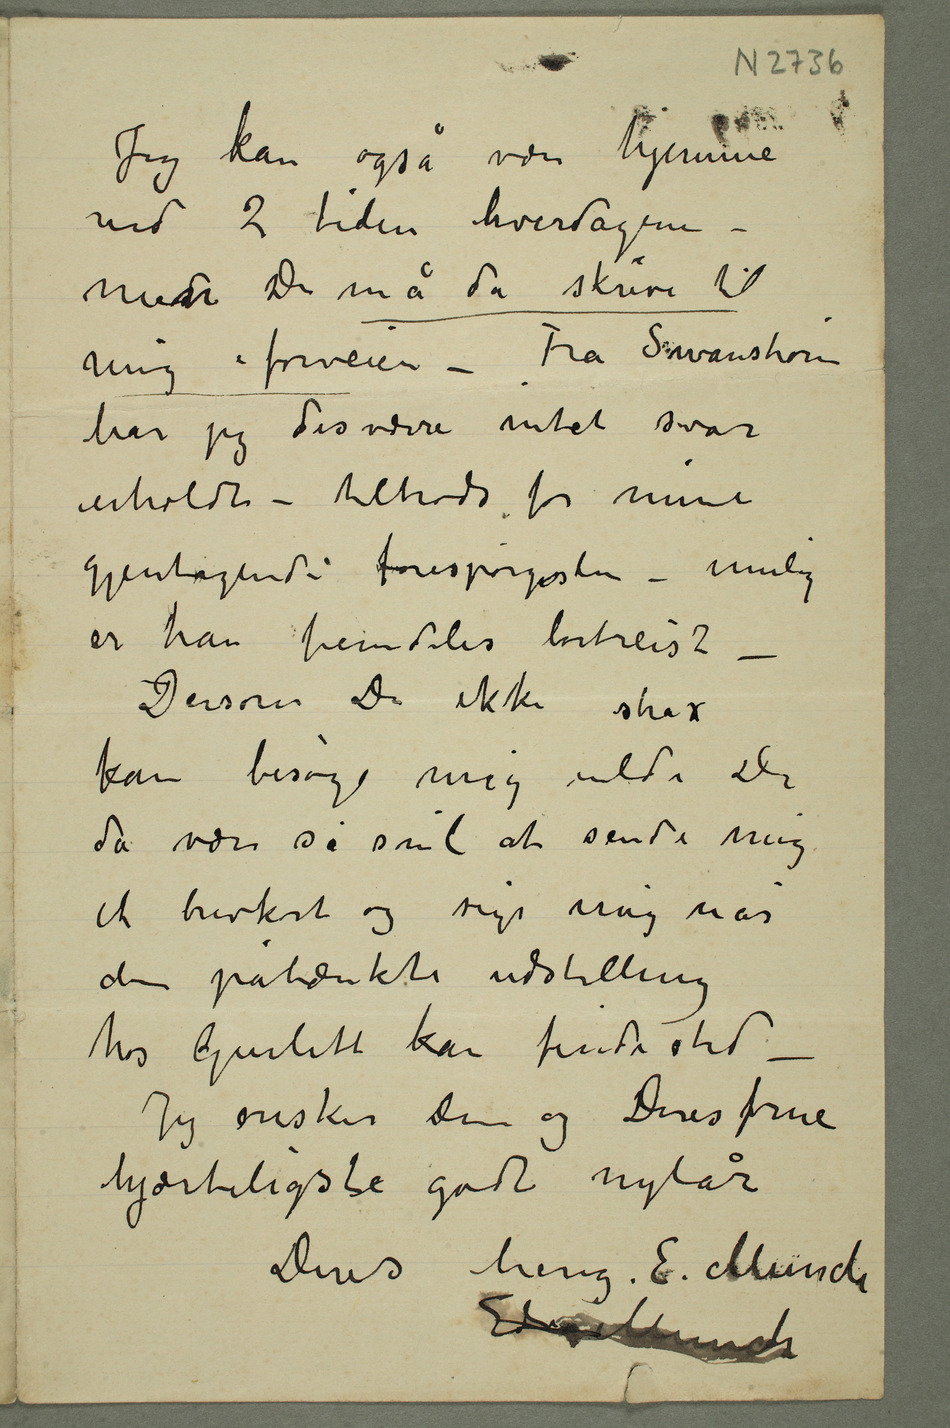 N 2736
Jeg kan også være hjemme
ved 2 tiden hverdagene –
men De må da skrive til
mig i forveien – Fra Swanström
har jeg desværre intet svar
erholdt – tiltrods for mine
gjentagende forespørgsler – mulig
er han fremdeles bortreist –
Dersom De ikke strax
kan besøge mig vilde De
da være så snil at sende mig
et brevkort og sige mig når
den påtænkte udstilling
hos Gurlitt kan finde sted –
Jeg ønsker Dem og Deres frue
hjærteligste godt nytår
Deres heng. E. Munch
Edv Munch